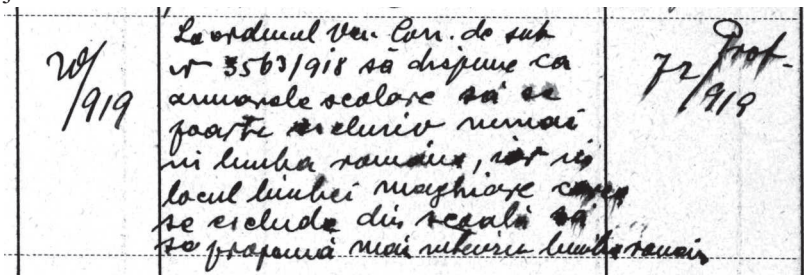 20/919
La ordinul Ven. Con. de sub
nr 3563/918 să dispune ca
anuarele scolare să se
poarte esclusiv numai
in limba română, iar in
locul limbei maghiare carea
se esclude din scoală să
se propună mai intensiv limba română
Prof.
72/919